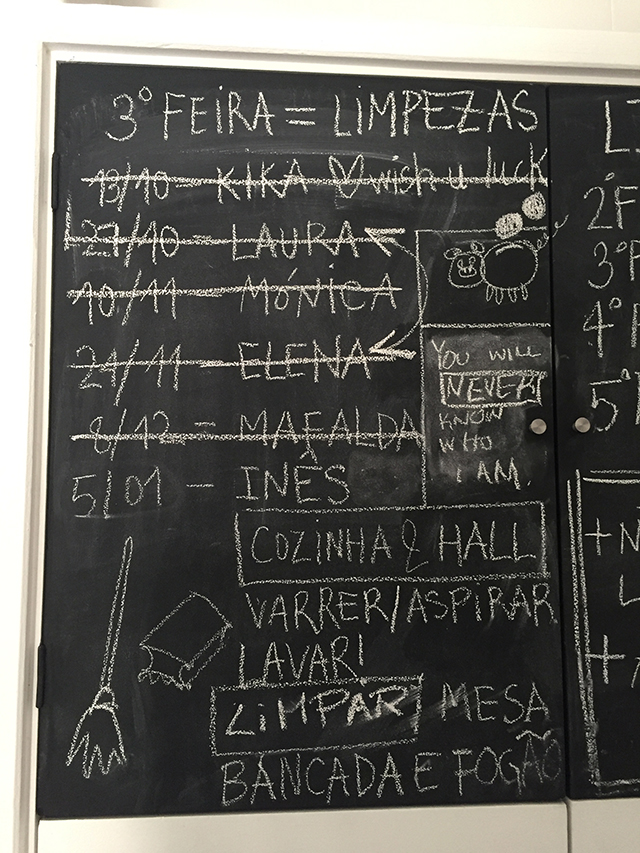 3º FEIRA = LIMPEZAS
13/10 - KIKA wish u luck
27/10 - LAURA
10/11 - MÓNICA
21/11 - ELENA
8/12 - MAFALDA
5/01 - INÊS
YOU WILL
NEVER
KNOW
WHO
I AM.
COZINHA & HALL
VARRER/ASPIRAR
LAVAR!
LIMPAR MESA
BANCADA E FOGÃO
2ºF
3º
4º
5º
+
+